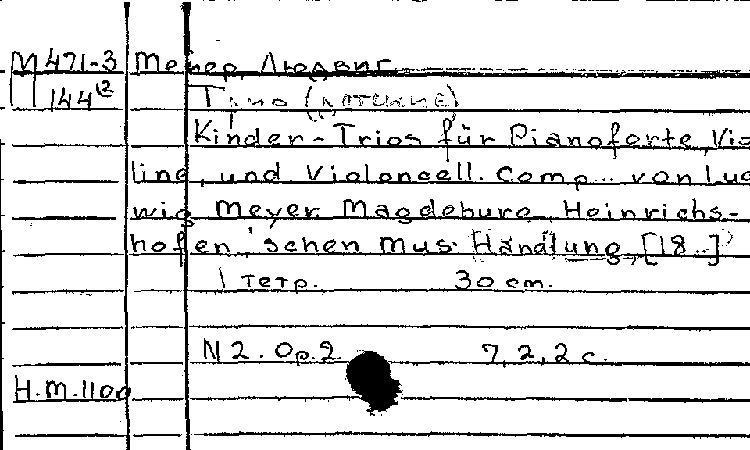 М471-3 Мейер, Людвиг.
144² Трио (детские)
Kinder-Trios für Pianoforte, Vio
line, und Violoncell. Comp... von Lud
wig Meyer. Magdeburg, Heinrichs-
hofen'schen Mus. Handlung, [18..]
1 тетр. 30 cm.
N 2. Op. 2. 7, 2, 2 с.
Н.М.1100